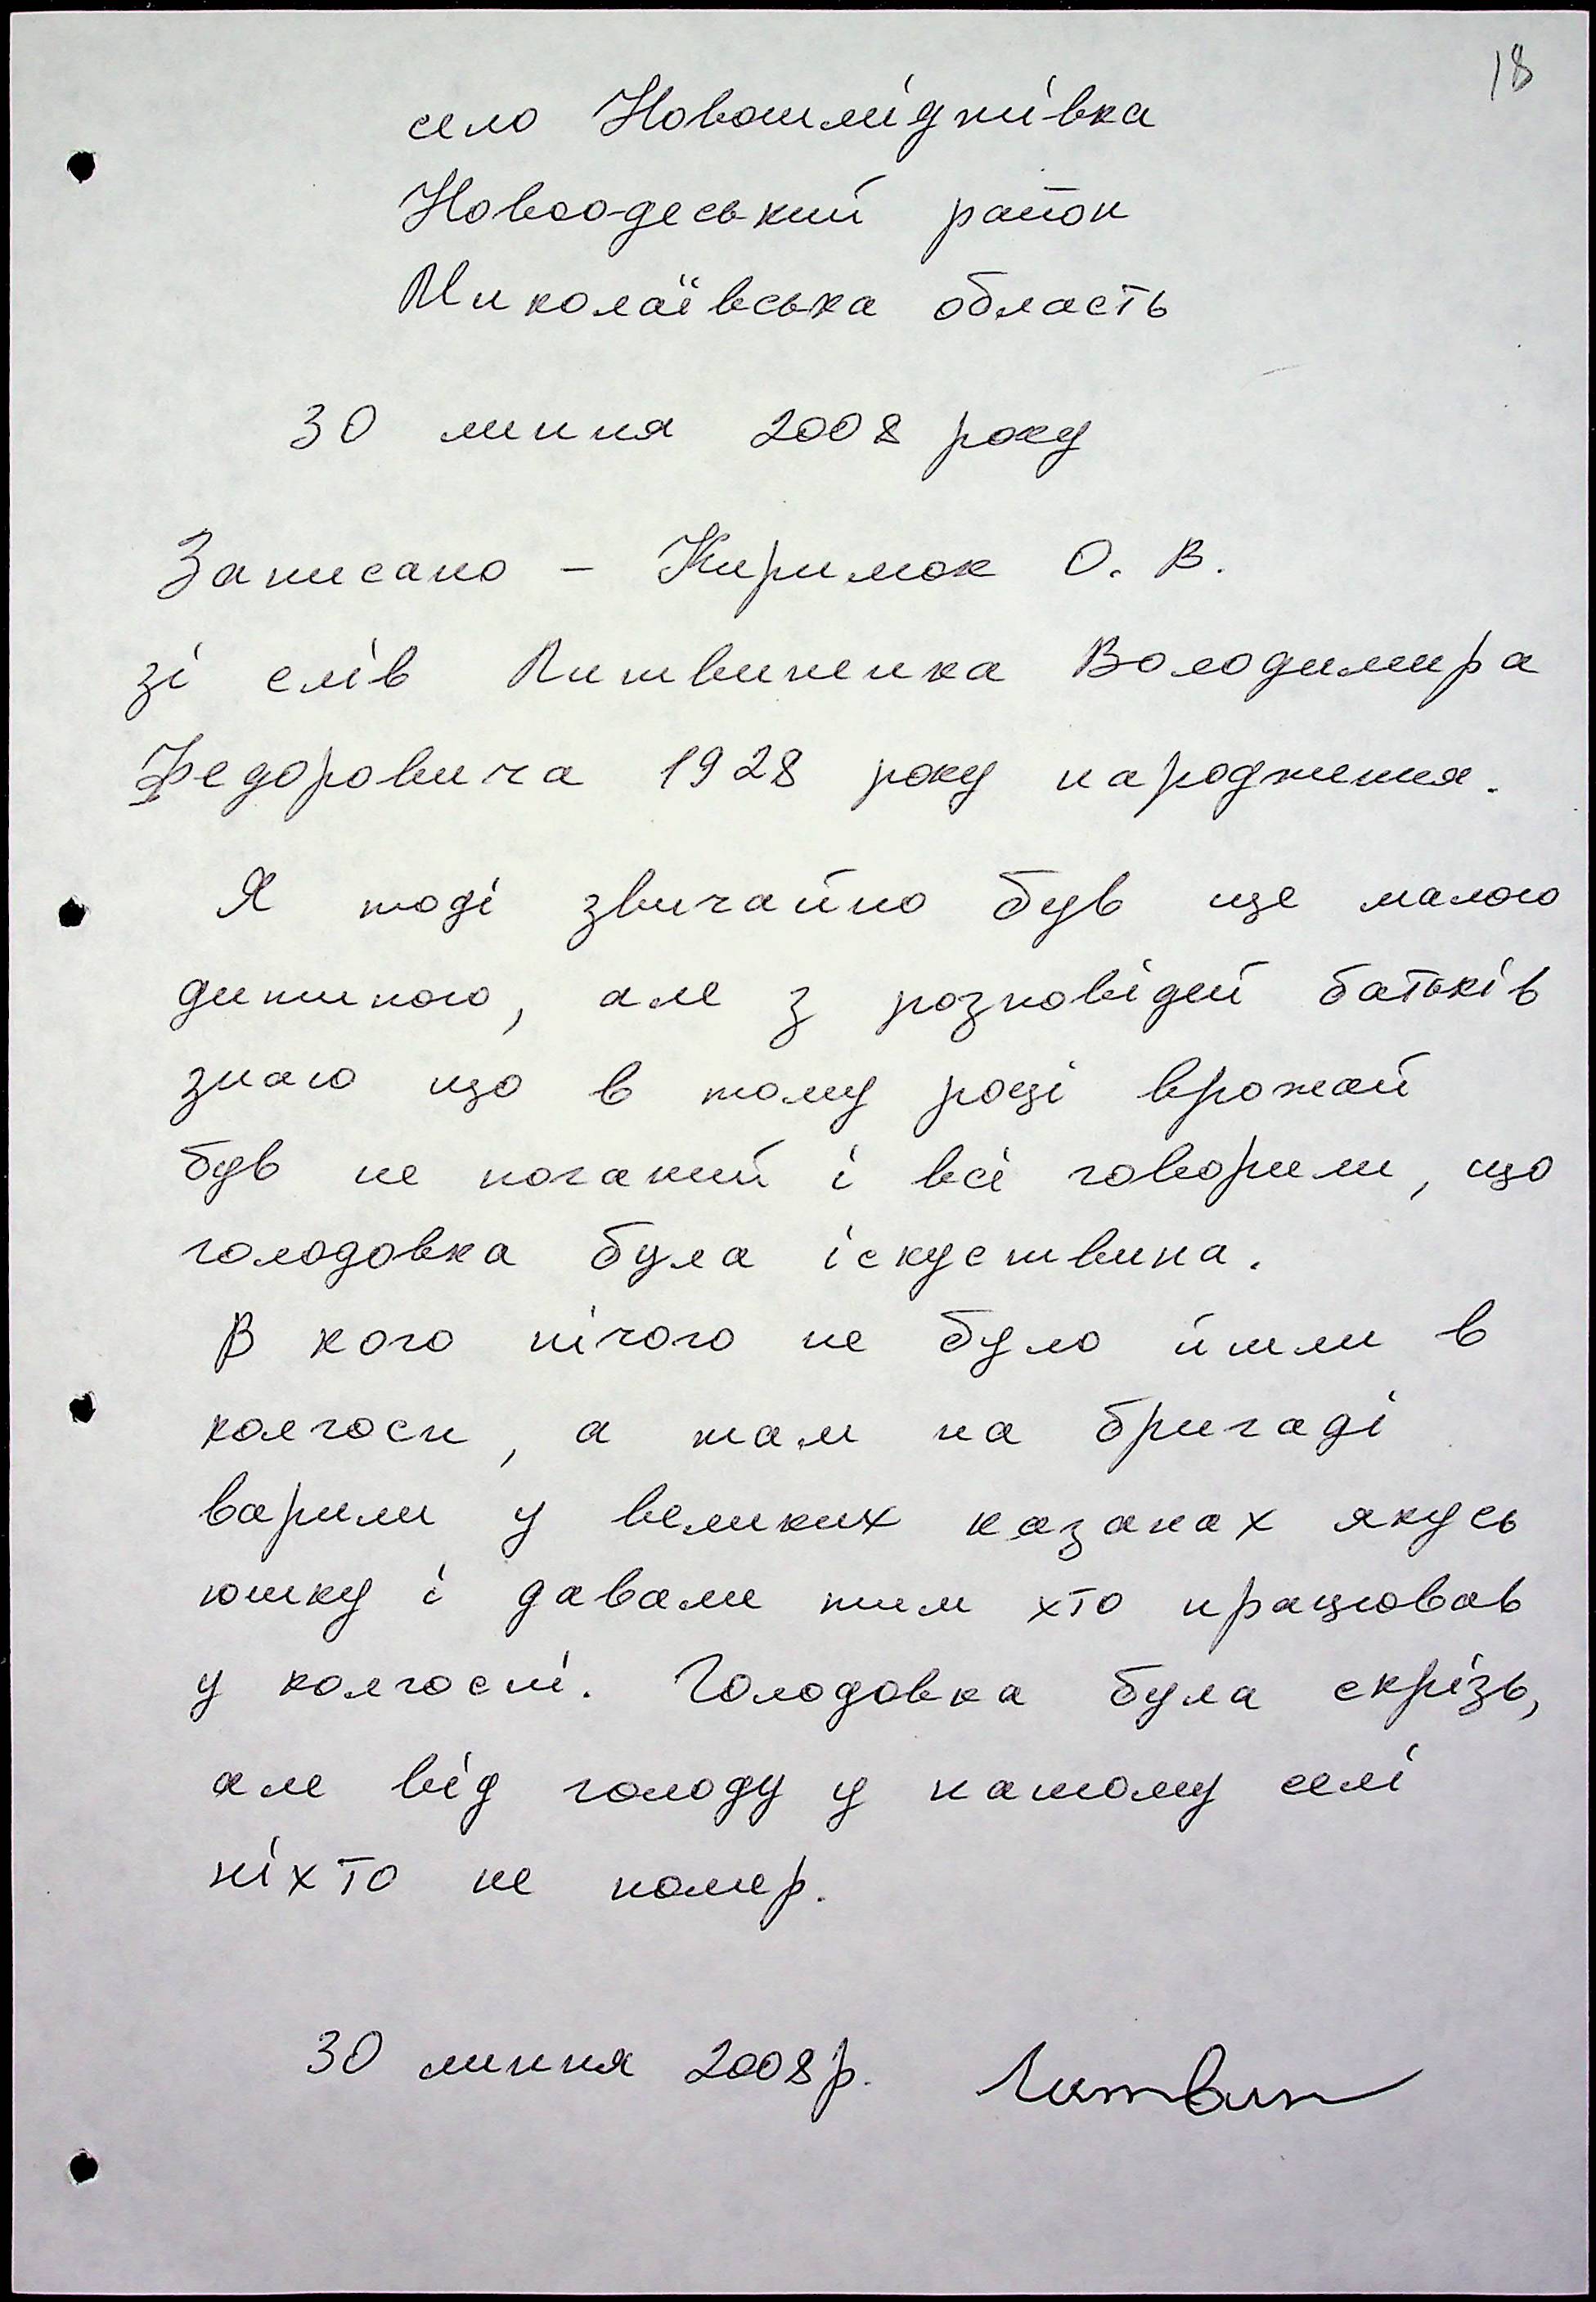 18
село Новошмідтівка
Новоодеський район
Миколаївська область
30 липня 2008 року
Записано – Киримок О. В.
зі слів Литвиненка Володимира
Федоровича 1928 року народження.
Я тоді звичайно був ще малою
дитиною, але з розповідей батьків
знаю що в тому році врожай
був не поганий і всі говорили, що
голодовка була іскуствина.
В кого нічого не було йшли в
колгосп, а там на бригаді
варили у великих казанах якусь
юшку і давали тим хто працював
у колгоспі. Голодовка була скрізь,
але від голоду у нашому селі
ніхто не помер.
30 липня 2008р. Литвин